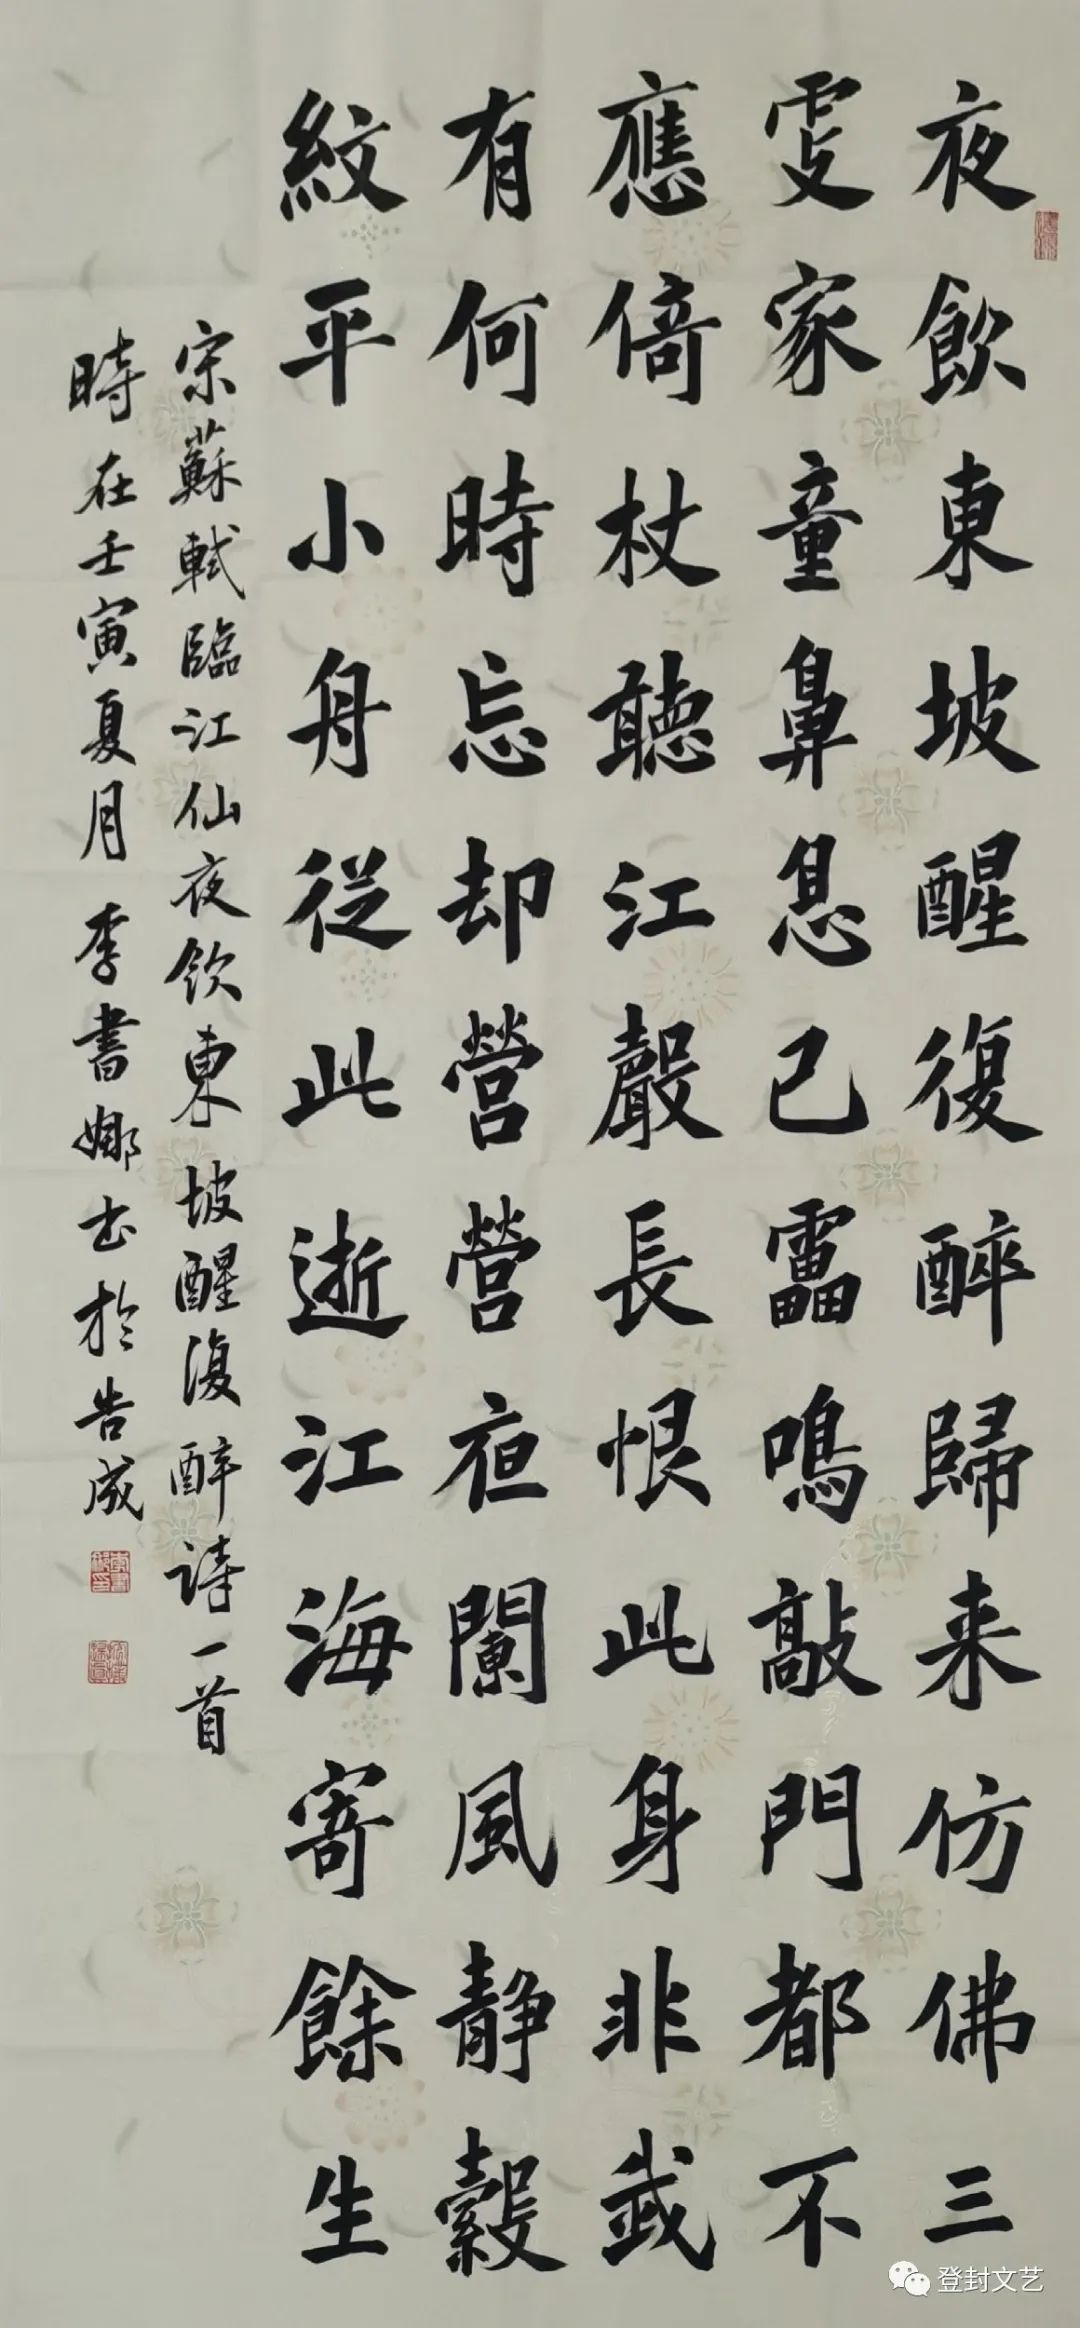 夜飲東坡醒復醉歸来仿佛三
更家童鼻息已雷鳴敲門都不
應倚杖聽江聲長恨此身非我
有何時忘却營營夜闌風静縠
紋平小舟從此逝江海寄餘生
宋蘇軾臨江仙夜飲東坡醒復醉詩一首
時在壬寅夏月李書娜书於告成
登封文艺